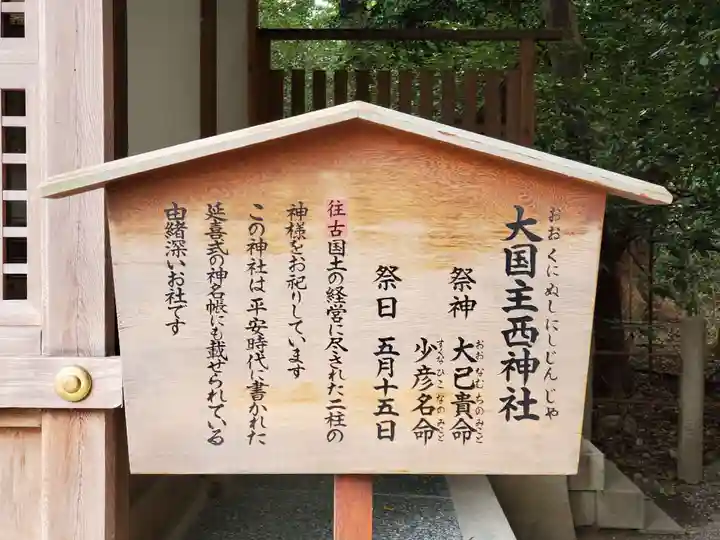 おおくにぬしにしじんじゃ
大国主西神社
祭神 大己貴命
おおなむちのみこと
少彦名命
すくなひこなのみこと
祭日 五月十五日
往古国土の経営に尽された二柱の
神様をお祀りしています
この神社は平安時代に書かれた
延喜式の神名帳にも載せられている
由緒深いお社です